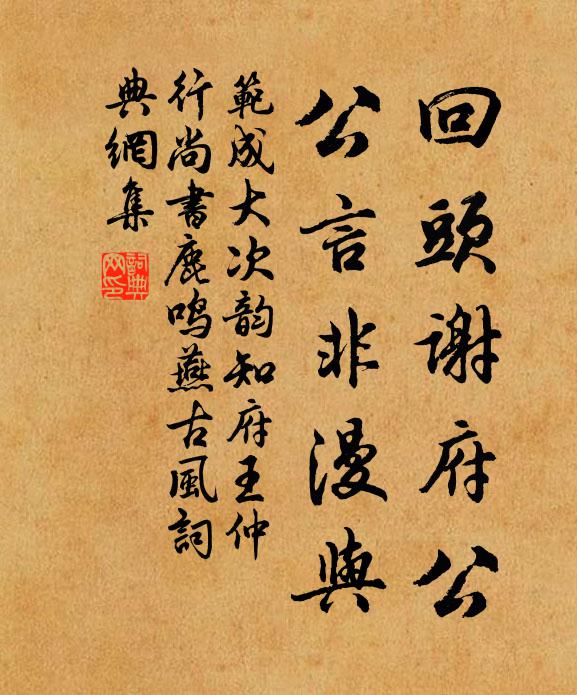 回頭謝府公
公言非漫與
範成大次韵知府王仲
行尚書鹿鸣燕古風詞
典網集
詞典
网印